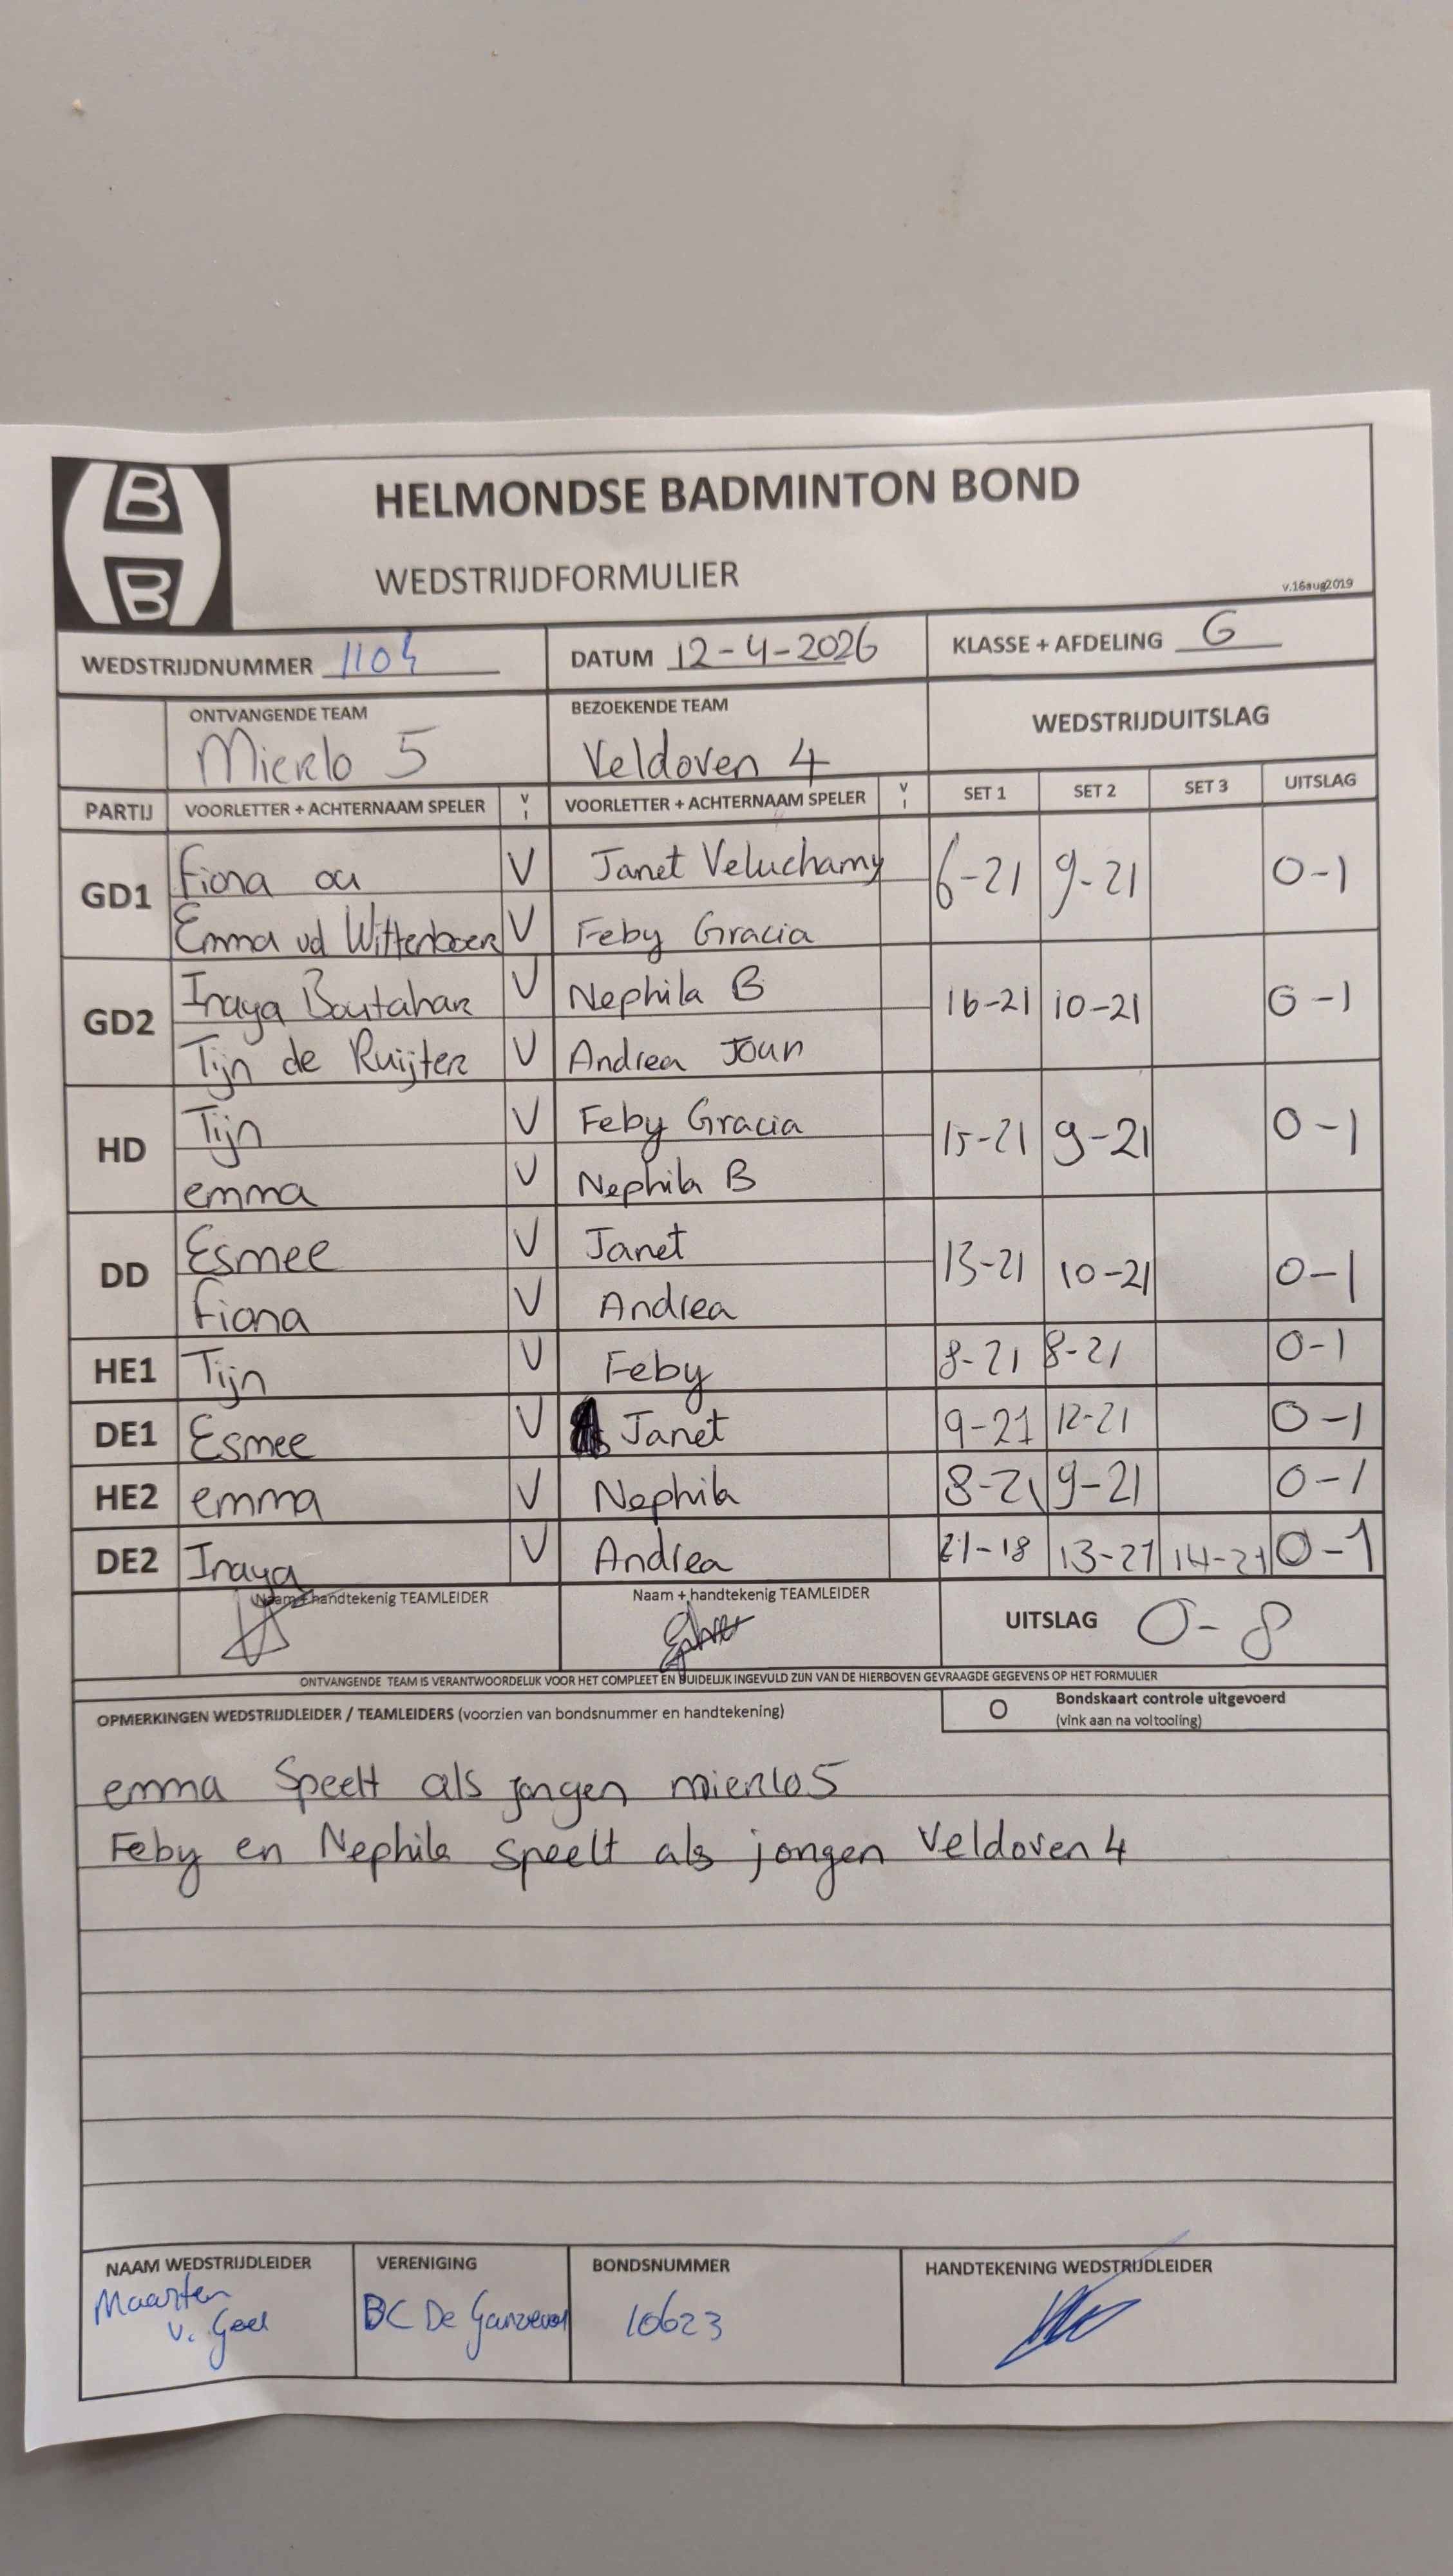 B
B
HELMONDSE BADMINTON BOND
WEDSTRIJDFORMULIER
v.16aug2019
WEDSTRIJDNUMMER 1104 DATUM 12-4-2026 KLASSE + AFDELING G
ONTVANGENDE TEAM BEZOEKENDE TEAM WEDSTRIJDUITSLAG
Mierlo 5 Veldoven 4
PARTIJ VOORLETTER + ACHTERNAAM SPELER V I VOORLETTER + ACHTERNAAM SPELER V I SET 1 SET 2 SET 3 UITSLAG
GD1 Fiona ou V Janet Veluchamy 6-21 9-21 0-1
Emma vd Wittenboer V Feby Gracia
GD2 Inaya Boutahar V Nephila B 16-21 10-21 0-1
Tijn de Ruijter V Andrea Joun
HD Tijn V Feby Gracia 15-21 9-21 0-1
emma V Nephila B
DD Esmee V Janet 13-21 10-21 0-1
Fiona V Andrea
HE1 Tijn V Feby 8-21 8-21 0-1
DE1 Esmee V Janet 9-21 12-21 0-1
HE2 emma V Nephila 8-21 9-21 0-1
DE2 Inaya V Andrea 21-18 13-21 14-21 0-1
Naam + handtekenig TEAMLEIDER Naam + handtekenig TEAMLEIDER UITSLAG 0-8
ONTVANGENDE TEAM IS VERANTWOORDELIJK VOOR HET COMPLEET EN DUIDELIJK INGEVULD ZIJN VAN DE HIERBOVEN GEVRAAGDE GEGEVENS OP HET FORMULIER
OPMERKINGEN WEDSTRIJDLEIDER / TEAMLEIDERS (voorzien van bondsnummer en handtekening) O Bondskaart controle uitgevoerd
(vink aan na voltooiing)
emma Speelt als jongen mierlo5
Feby en Nephila speelt als jongen Veldoven 4
NAAM WEDSTRIJDLEIDER VERENIGING BONDSNUMMER HANDTEKENING WEDSTRIJDLEIDER
Maarten
v. Geel BC De Ganzeveer 10623